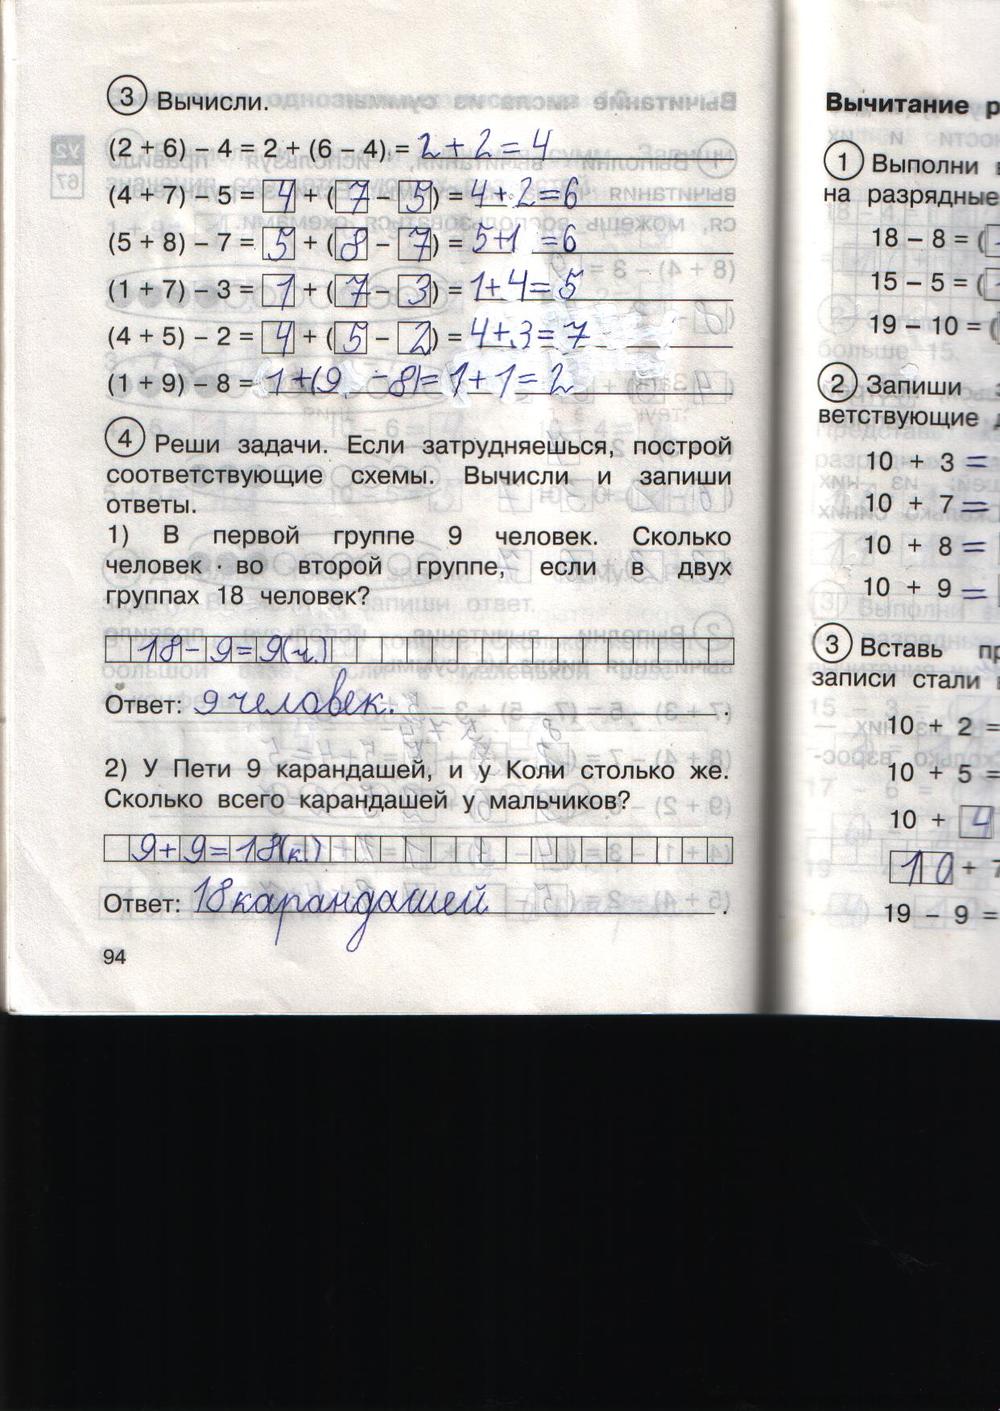 3 Вычисли.
(2 + 6) – 4 = 2 + (6 – 4) = 2 + 2 = 4
(4 + 7) – 5 = 4 + (7 – 5) = 4 + 2 = 6
(5 + 8) – 7 = 5 + (8 – 7) = 5+1 = 6
(1 + 7) – 3 = 1 + (7 – 3) = 1+4 = 5
(4 + 5) – 2 = 4 + (5 – 2) = 4+3 = 7
(1 + 9) – 8 = 1+(9 – 8) = 1 + 1 = 2
4 Реши задачи. Если затрудняешься, построй
соответствующие схемы. Вычисли и запиши
ответы.
1) В первой группе 9 человек. Сколько
человек во второй группе, если в двух
группах 18 человек?
18 – 9 = 9(ч.)
Ответ: 9 человек.
2) У Пети 9 карандашей, и у Коли столько же.
Сколько всего карандашей у мальчиков?
9 + 9 = 18(к.)
Ответ: 18 карандашей.
94
Вычитание
1 Выполни
на разрядные
18 – 8 = (
15 – 5 = (
19 – 10 = (
2 Запиши
ветствующие
10 + 3 =
10 + 7 =
10 + 8 =
10 + 9 =
3 Вставь
записи стали
10 + 2 =
10 + 5 =
10 + 4
10 +
19 – 9 =